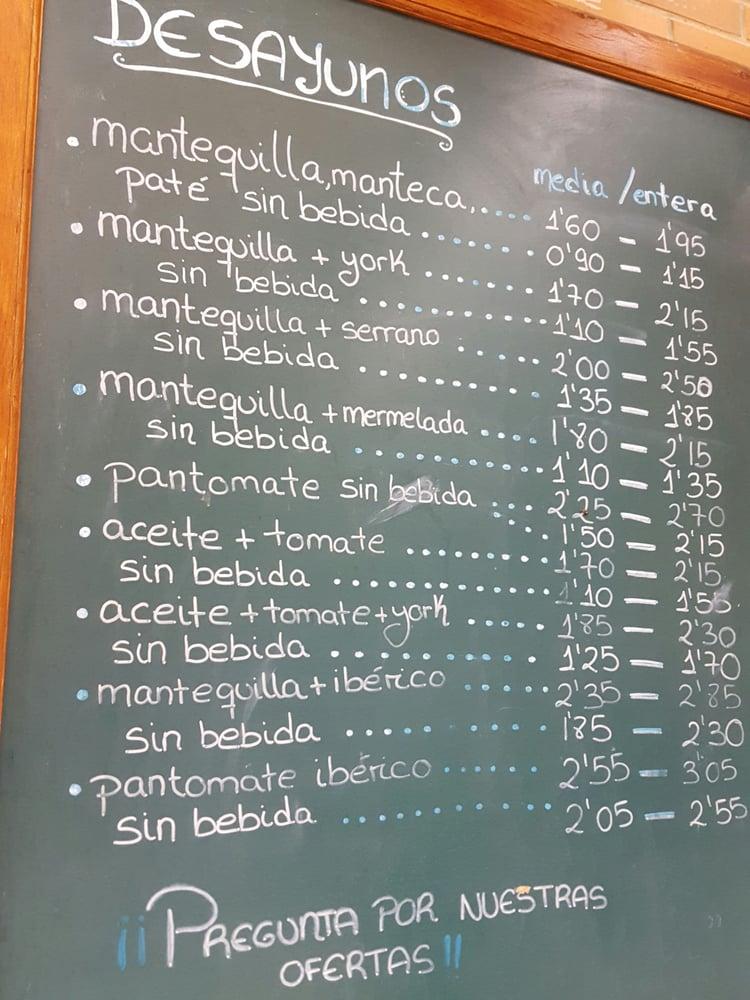 DESAYUNOS
media / entera
• mantequilla, manteca, ..... 1'60 - 1'95
paté sin bebida ....... 0'90 - 1'15
• mantequilla + york ....... 1'70 - 2'15
sin bebida ........... 1'10 - 1'55
• mantequilla + serrano ...... 2'00 - 2'50
sin bebida .......... 1'35 - 1'85
• mantequilla + mermelada .... 1'80 - 2'15
sin bebida ........... 1'10 - 1'35
• pantomate sin bebida ... 2'25 - 2'70
.... 1'50 - 2'15
• aceite + tomate ......... 1'70 - 2'15
sin bebida ............ 1'10 - 1'55
• aceite + tomate + york ..... 1'85 - 2'30
sin bebida .......... 1'25 - 1'70
• mantequilla + ibérico ...... 2'35 - 2'85
sin bebida .......... 1'85 - 2'30
• pantomate ibérico ...... 2'55 - 3'05
sin bebida ............ 2'05 - 2'55
¡¡PREGUNTA POR NUESTRAS
OFERTAS!!